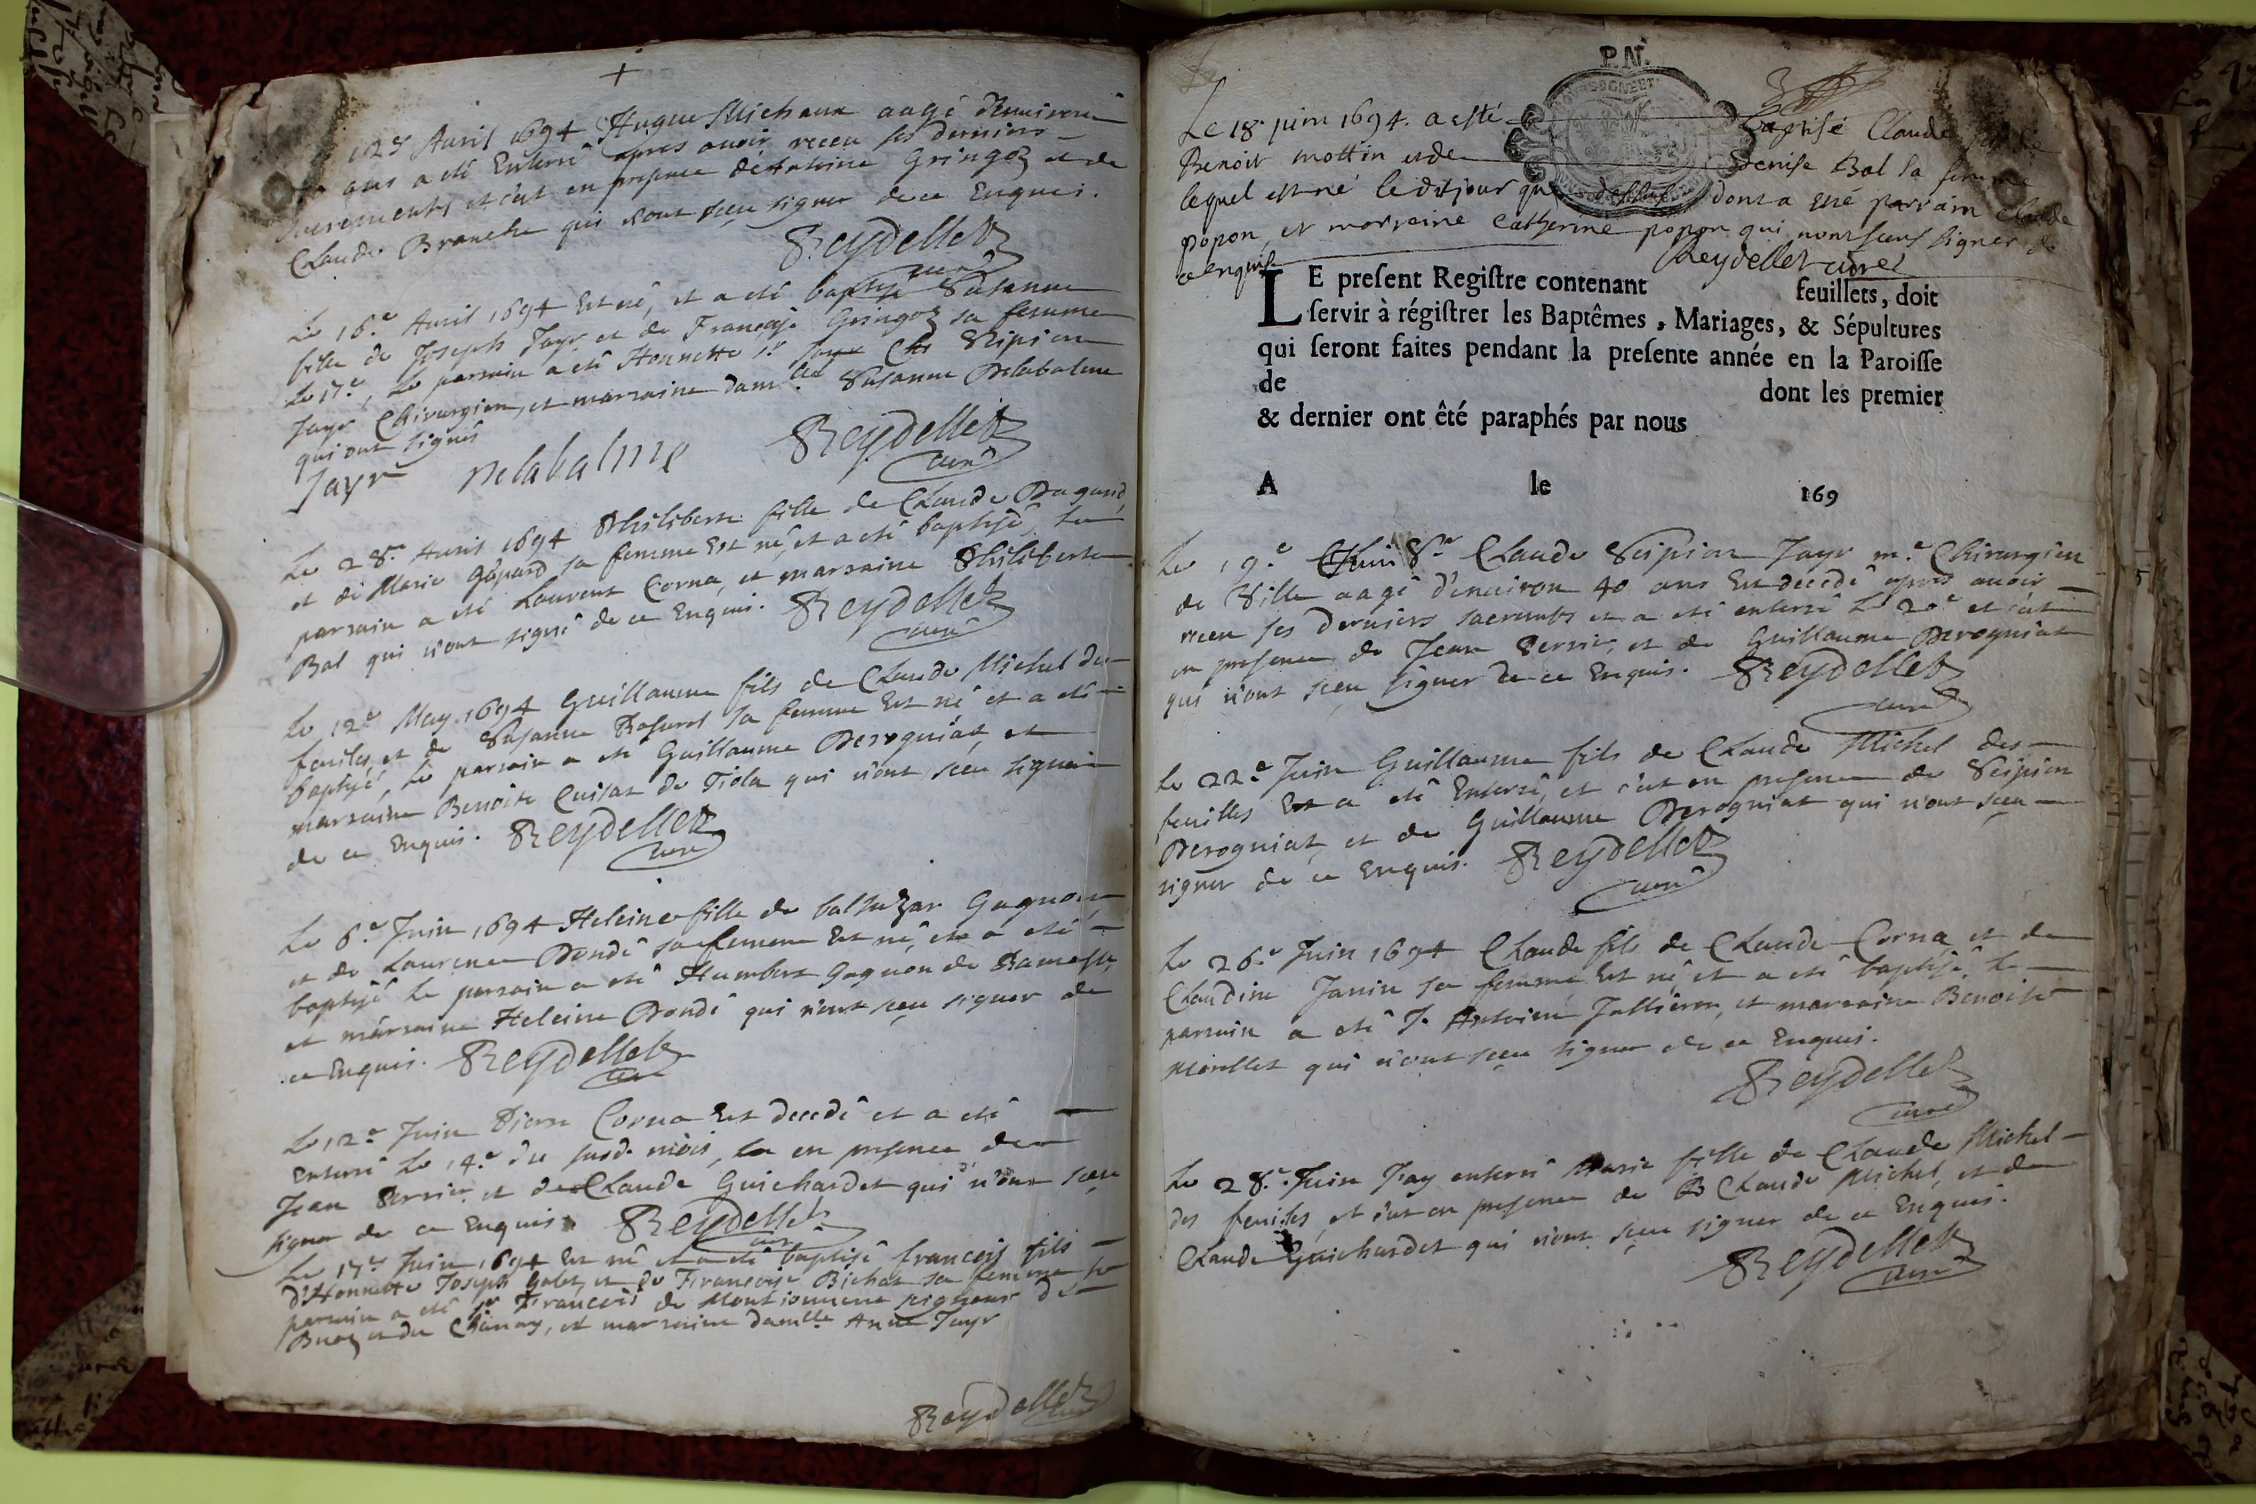 Avril 1694 Hugue Michaux aagé d'environ
ans a eté Enterré apres avoir receu ses derniers
sacrements et c'est en presence d'Antoine Gringoz et de
Claude Branche qui n'ont sçeu signer de ce Enquis.
Reydellet
curé
Le 16.e Avril 1694 Est né, et a eté baptisé Susanne
fille de Joseph Jayr et de Françoise Gringoz sa femme
le 17.e, Le parrain a eté Honnette Sr Scipion
Jayr Chirurgien, et marraine dam.lle Susanne Delabalme
qui ont signés
Jayr Delabalme Reydellet
curé
Le 28.e Avril 1694 Philiberte fille de Claude Dagand,
et de Marie Gopard sa femme Est né, et a eté baptisé, Le
parrain a eté Laurent Corna, et marraine Philiberte
Bal qui n'ont signé de ce Enquis. Reydellet
curé
Le 12.e May 1694 Guillaume fils de Claude Michel des
feuiles, et de Susanne sa femme Est né et a eté
baptisé, Le parrain a eté Guillaume Derogniat, et
marraine Benoite Cuisat de Fiola qui n'ont sçeu signer
de ce Enquis. Reydellet
curé
Le 6.e Juin 1694 Heleine fille de balthazar Gagnon
et de Laurence Dondé sa femme Est né, et a eté
baptisé Le parrain a eté Humbert Gagnon de
et marraine Heleine Dondé qui n'ont sçeu signer de
ce Enquis. Reydellet
curé
Le 12.e Juin Pierre Corna Est decedé et a eté
Enterré Le 14.e du susd. mois, en presence de
Jean Perrier, et de Claude Guichardet qui n'ont sceu
signer de ce Enquis. Reydellet
curé
Le 17.e Juin 1694 Est né et a eté baptisé françois fils
d'Honnette Joseph Galet, et de Françoise Bichat sa femme Le
parrain a eté Sr François de Montjouvent signeur de
et du Chanay, et marraine damlle Anne Jayr
Reydellet
curé
P. N.
Le 18.e juin 1694. a esté baptisé Claude fils de
Benoit mottin et de Denise Bal sa femme
lequel est né le dit jour que dessus dont a esté parrain Claude
popon, et marraine catherine popon qui n'ont sceus signer de
ce enquis Reydellet curé
LE present Registre contenant feuillets, doit
servir à régistrer les Baptêmes, Mariages, & Sépultures
qui seront faites pendant la presente année en la Paroisse
de dont les premier
& dernier ont été paraphés par nous
A le 169
Le 19.e Sr Claude Scipion Jayr m.e Chirurgien
de Ville aagé d'environ 40 ans Est decedé apres avoir
receu ses derniers sacremts et a eté enterré Le 20.e et c'est
en presence de Jean Perrier, et de Guillaume Derogniat
qui n'ont sçeu signer de ce Enquis. Reydellet
curé
Le 22.e Juin Guillaume fils de Claude Michel des
feuilles Est a eté Enterré, et c'est en presence de Scipion
Derogniat, et de Guillaume Derogniat qui n'ont sçeu
signer de ce Enquis. Reydellet
curé
Le 26.e Juin 1694 Claude fils de Claude Corna et de
Claudine Janin sa femme Est né et a eté baptisé, Le
parrain a eté Sr Antoine Jallieron, et marraine Benoite
Morellet qui n'ont sçeu signer de ce Enquis.
Reydellet
curé
Le 28.e Juin J'ay enterré Marie fille de Claude Michel
des feuiles, et c'est en presence de Claude Michel, et de
Claude Guichardet qui n'ont sçeu signer de ce Enquis.
Reydellet
curé